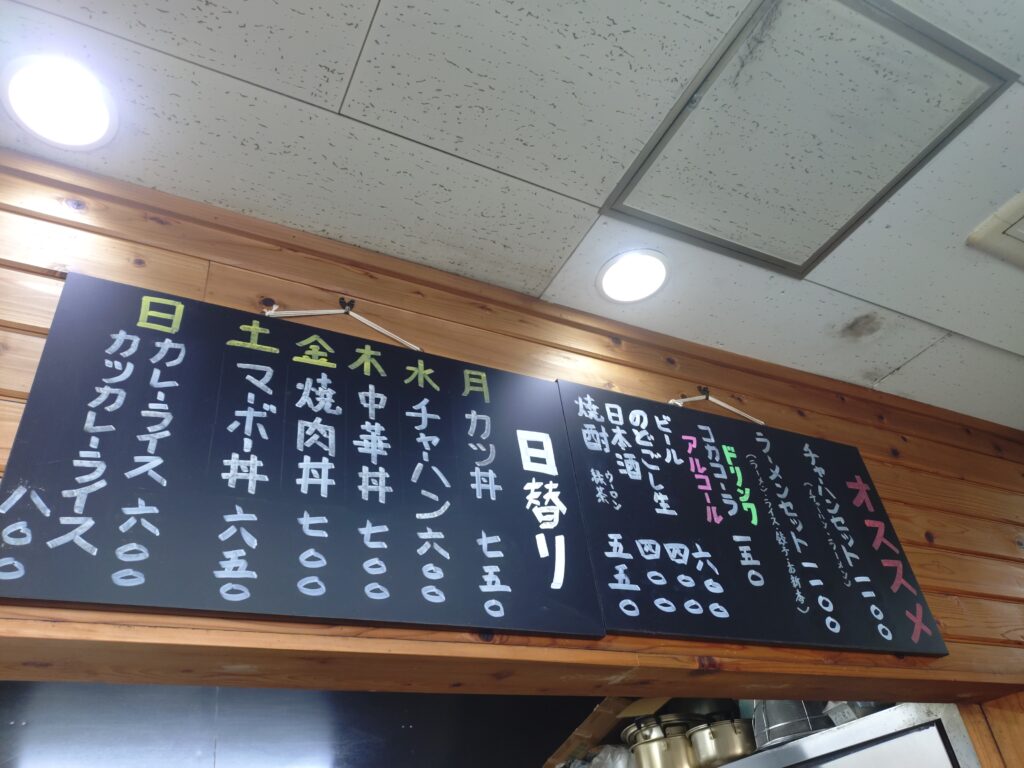 オススメ
チャーハンセット 一一〇〇
ラーメンセット 一一〇〇
(ラーメン・ライス・餃子・お新香)
ドリンク
コカコーラ 一五〇
アルコール
ビール 六〇〇
のどごし生 四〇〇
日本酒 四〇〇
焼酎 ウーロン 五五〇
日替り
月 カツ丼 七五〇
水 チャーハン 六〇〇
木 中華丼 七〇〇
金 焼肉丼 七〇〇
土 マーボー丼 六五〇
日 カレーライス 六〇〇
カツカレーライス 八〇〇